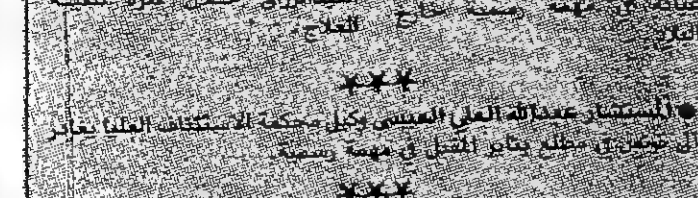 في مهمة رسمية خارج
العلاج.
البلاد.
★★★
● المستشار عبدالله العلي العيسى وكيل محكمة الاستئناف العليا يغادر
الى تونس في مطلع يناير المقبل في مهمة رسمية.
★★★